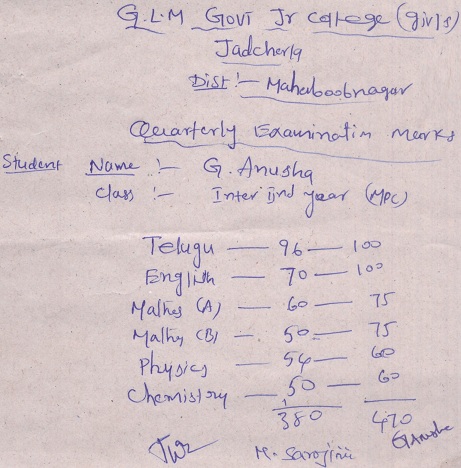 G.L.M Govt Jr College (girls)
Jadcherla
Dist :- Mahaboobnagar
Quarterly Examination marks
Student Name :- G. Anusha
Class :- Inter IInd year (MPC)
Telugu — 96 — 100
English — 70 — 100
Maths (A) — 60 — 75
Maths (B) — 50 — 75
Physics — 54 — 60
Chemistry — 50 — 60
380 470
M. Sarojini G Anusha